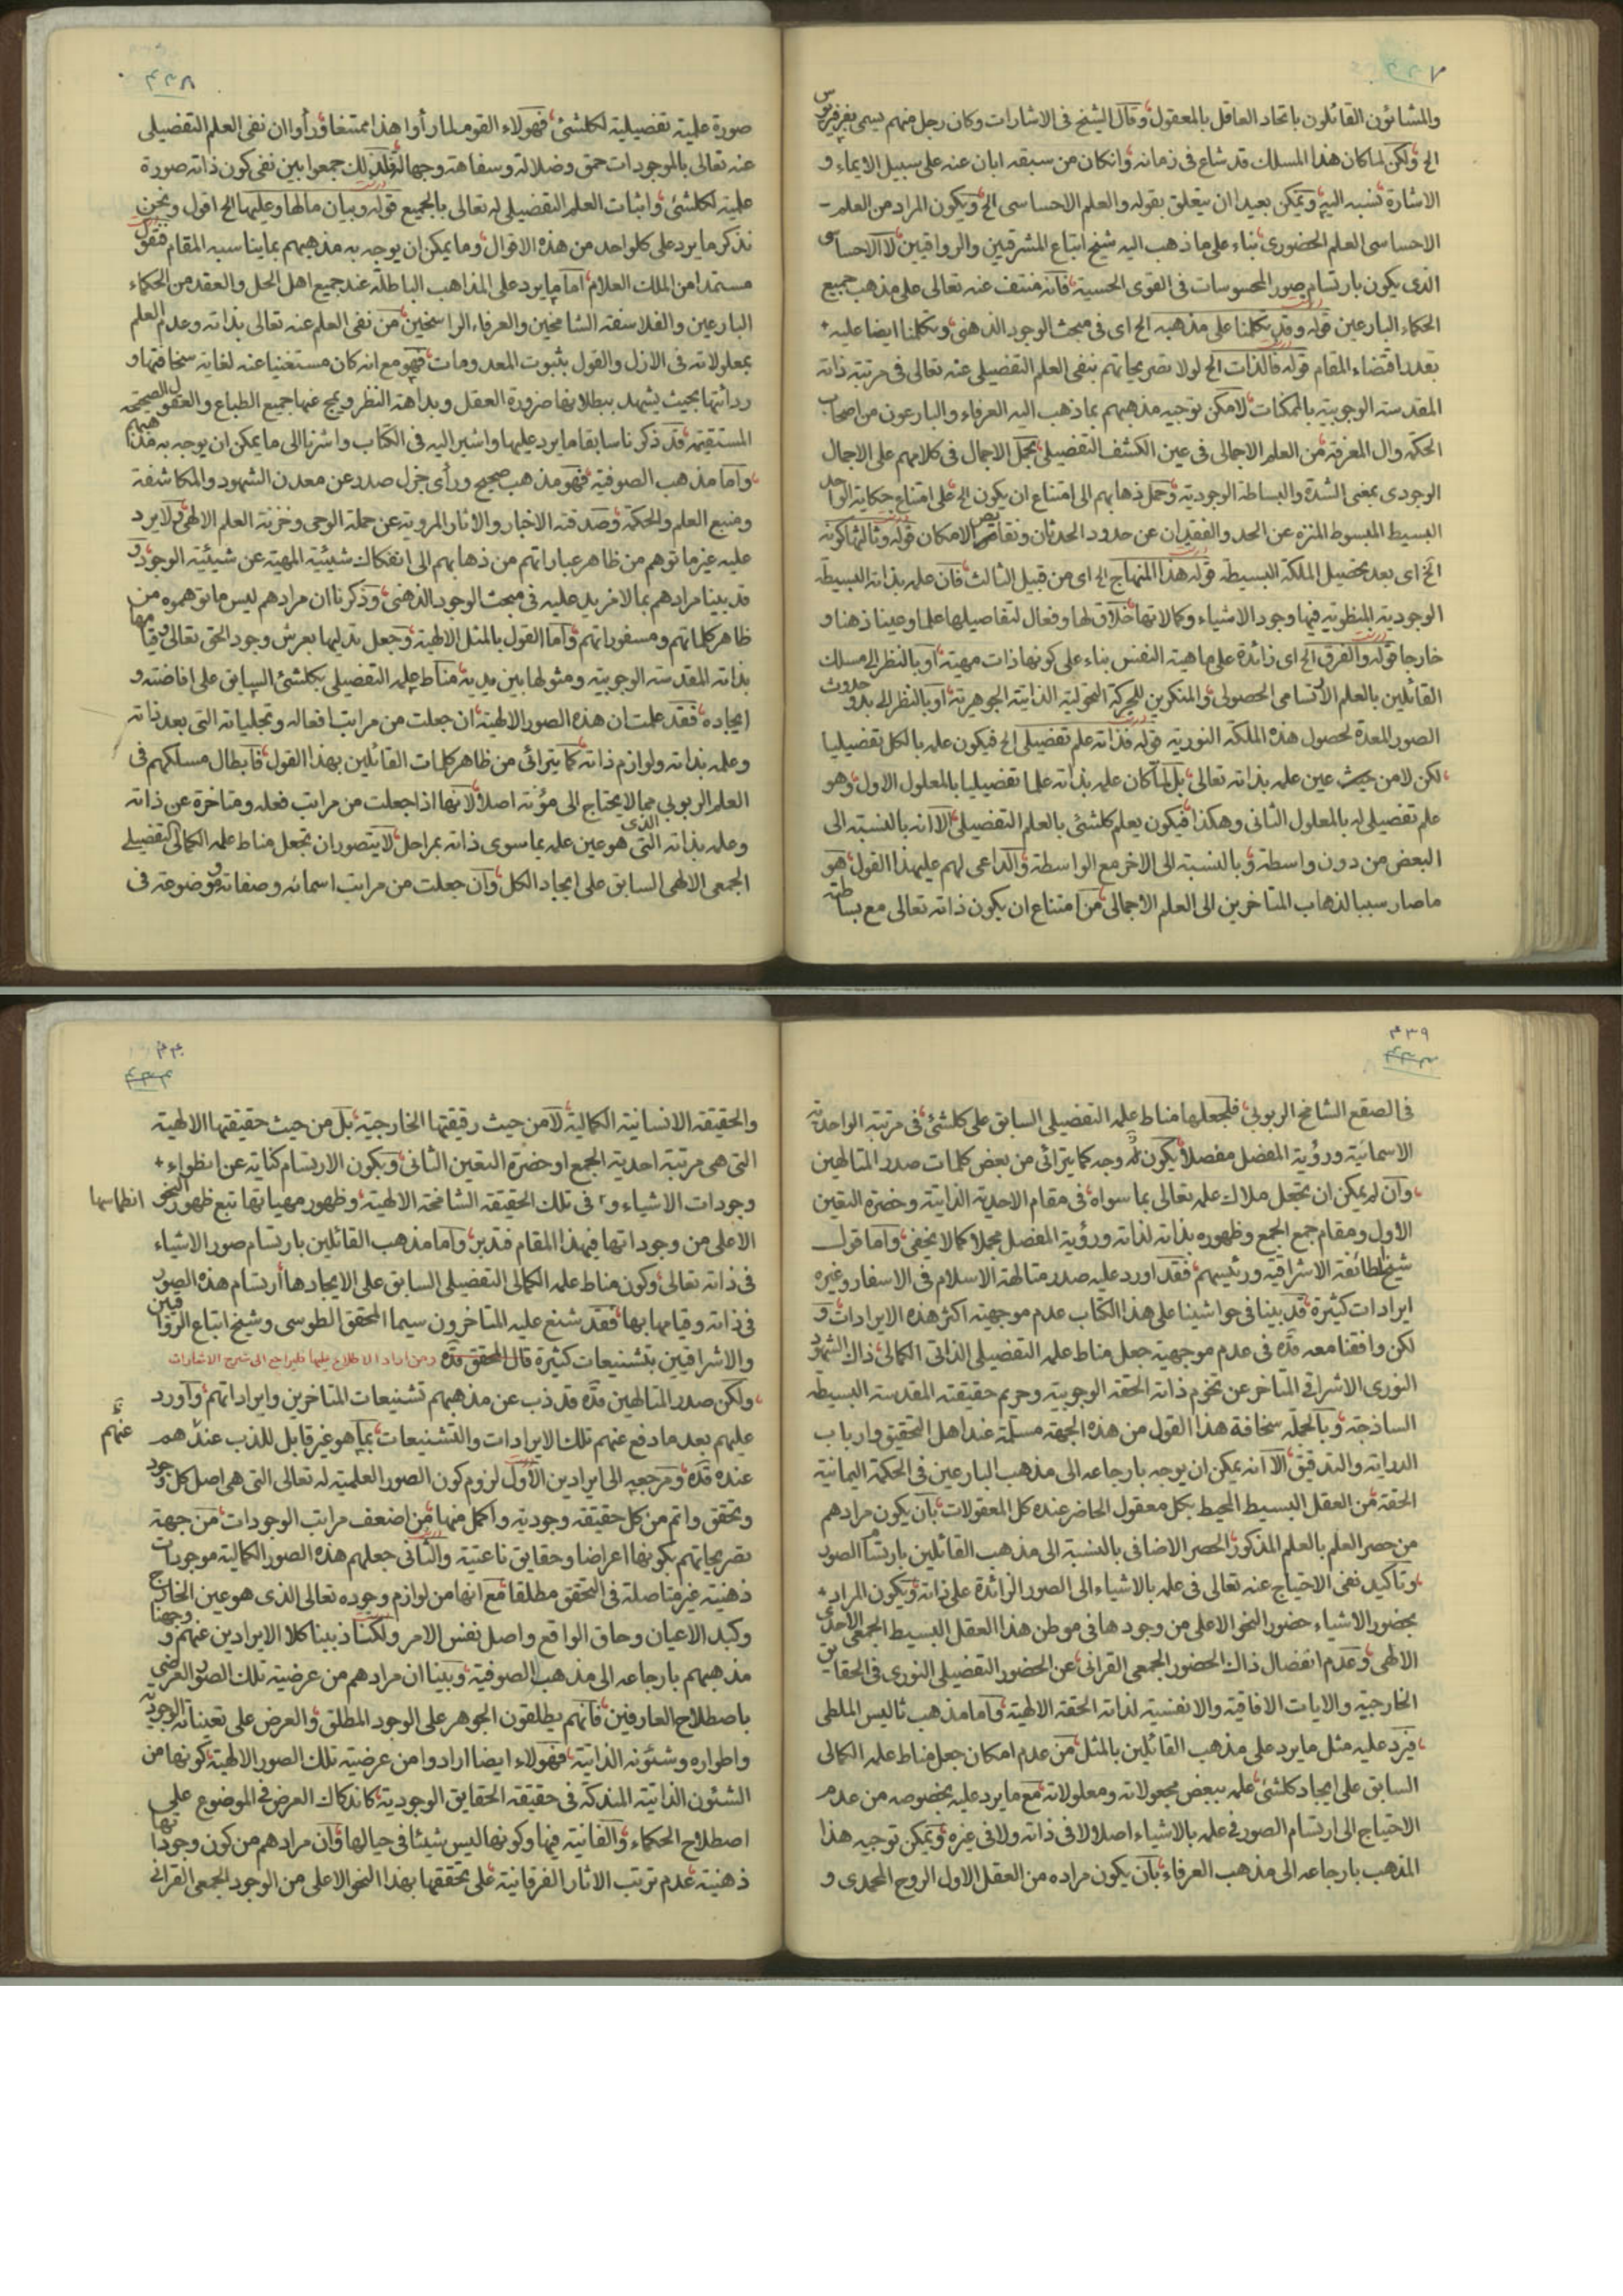 والمشائون القائلون باتحاد العاقل بالمعقول وقال الشيخ فى الاشارات وكان رجل منهم يسمى بفرفريوس
الخ ولكن لما كان هذا المسلك قد شاع فى زمانه وانكان من سبقه ابان عنه على سبيل الايماء و
الاشارة نسبه اليه ويمكن بعيدا ان يتعلق بقوله والعلم الاحساسى الخ ويكون المراد من العلم
الاحساسى العلم الحضورى بناء على ما ذهب اليه شيخ اتباع المشرقيين والرواقيين لا الاحساسى
الذى يكون بارتسام صور المحسوسات فى القوى الحسية فانه منتف عنه تعالى على مذهب جميع
الحكماء البارعين قوله وقد تكلمنا على مذهبه الخ اى فى مبحث الوجود الذهنى وتكلمنا ايضا عليه
بقدر اقتضاء المقام قوله فالذات الخ لولا تصريحاتهم بنفى العلم التفصيلى عنه تعالى فى مرتبة ذاته
المقدسة الوجوبية بالممكنات لامكن توجيه مذهبهم بما ذهب اليه العرفاء والبارعون من اصحاب
الحكمة وال المعرفة من العلم الاجمالى فى عين الكشف التفصيلى بجعل الاجمال فى كلامهم على الاجمال
الوجودى بمعنى الشدة والبساطة الوجودية وحمل ذهابهم الى امتناع ان يكون الخ على امتناع حكاية الواحد
البسيط المبسوط المنزه عن الحد والفقدان عن حدود الحدثان ونقايص الامكان قوله وثالثها كونه
الخ اى بعد تحصيل الملكة البسيطة قوله هذا المنهاج الخ اى من قبيل الثالث فان علمه بذاته البسيطة
الوجودية المنطوية فيها وجود الاشياء وكمالاتها خلاق لها وفعال لتفاصيلها علما وعينا ذهنا و
خارجا قوله والفرق الخ اى زائدة على ماهية النفس بناء على كونها ذات مهية او بالنظر الى مسلك
القائلين بالعلم الارتسامى الحصولى والمنكرين للحركة التحولية الذاتية الجوهرية او بالنظر الى بدو حدوث
الصور المعدة لحصول هذه الملكة النورية قوله فذاته علم تفصيلى الخ فيكون علمه بالكل تفصيليا
لكن لا من حيث عين علمه بذاته تعالى بل لما كان علمه بذاته علما تفصيليا بالمعلول الاول وهو
علم تفصيلى له بالمعلول الثانى وهكذا فيكون يعلم كلشئ بالعلم التفصيلى الا انه بالنسبة الى
البعض من دون واسطة وبالنسبة الى الاخر مع الواسطة والداعى لهم عليهذا القول هو
ما صار سببا لذهاب المتاخرين الى العلم الاجمالى من امتناع ان يكون ذاته تعالى مع بساطته
صورة علمية تفصيلية لكلشئ فهولاء القوم لما رأوا هذا ممتنعا ورأوا ان نفى العلم التفصيلى
عنه تعالى بالموجودات حمق وضلالة وسفاهة وجهالة فلذلك جمعوا بين نفى كون ذاته صورة
علمية لكلشئ واثبات العلم التفصيلى له تعالى بالجميع قوله وبيان مالها وعليها الخ اقول ونحن
نذكر ما يرد على كلواحد من هذه الاقوال وما يمكن ان يوجه به مذهبهم بما يناسبه المقام فنقول
مستمدا من الملك العلام اما ما يرد على المذاهب الباطلة عند جميع اهل الحل والعقد من الحكماء
البارعين والفلاسفة الشامخين والعرفاء الراسخين من نفى العلم عنه تعالى بذاته وعدم العلم
بمعلولاته فى الازل والقول بثبوت المعدومات فهو مع انه كان مستغنيا عنه لغاية سخافتها و
ردائتها بحيث يشهد ببطلانها ضرورة العقل وبداهة النظر ويمج عنها جميع الطباع والعقول الصحيحة
المستقيمة قد ذكرنا سابقا ما يرد عليها واشير اليه فى الكتاب واشرنا الى ما يمكن ان يوجه به مذاهبهم
واما مذهب الصوفية فهو مذهب صحيح ورأى جزل صدر عن معدن الشهود والمكاشفة
ومنبع العلم والحكمة وصدقته الاخبار والاثار المروية عن حملة الوحى وخزنة العلم الالهى ولا يرد
عليه غير ما توهم من ظاهر عباراتهم من ذهابهم الى انفكاك شيئية المهية عن شيئية الوجود و
قد بينا مرادهم بما لا مزيد عليه فى مبحث الوجود الذهنى وذكرنا ان مرادهم ليس ما توهموه من
ظاهر كلماتهم ومسفوراتهم واما القول بالمثل الالهية وجعل تدليها بعرش وجود الحق تعالى وقيامها
بذاته المقدسة الوجوبية ومثولها بين يديه مناط علمه التفصيلى بكلشئ السابق على افاضته و
ايجاده فقد علمت ان هذه الصور الالهية ان جعلت من مراتب افعاله وتجلياته التى بعد ذاته
وعلمه بذاته ولوازم ذاته كما يترائى من ظاهر كلمات القائلين بهذا القول فابطال مسلكهم فى
العلم الربوبى مما لا يحتاج الى مؤنة اصلا لانها اذا جعلت من مراتب فعله ومتاخرة عن ذاته
وعلمه بذاته الذى هو عين علمه بما سوى ذاته بمراحل لا يتصور ان تجعل مناط علمه الكمالى التفصيلى
الجمعى الالهى السابق على ايجاد الكل وان جعلت من مراتب اسمائه وصفاته وموضوعة فى
٤٣٩
فى الصقع الشامخ الربوبى فلجعلها مناط علمه التفصيلى السابق على كلشئ فى مرتبة الواحدية
الاسمائية ورؤية المفصل مفصلا يكون له وجه كما يترائى من بعض كلمات صدر المتالهين
وان لم يمكن ان تجعل ملاك علمه تعالى بما سواه فى مقام الاحدية الذاتية وحضرة التعين
الاول ومقام جمع الجمع وظهوره بذاته لذاته ورؤية المفصل مجملا كما لا يخفى واما قول
شيخ الطائفة الاشراقية ورئيسهم فقد اورد عليه صدر متالهة الاسلام فى الاسفار وغيره
ايرادات كثيرة قد بينا فى حواشينا على هذا الكتاب عدم موجهية اكثر هذه الايرادات و
لكن وافقنا معه قده فى عدم موجهية جعل مناط علمه التفصيلى الذاتى الكمالى ذاك الشهود
النورى الاشراقى المتاخر عن تخوم ذاته الحقة الوجوبية وحريم حقيقته المقدسة البسيطة
الساذجة وبالجملة سخافة هذا القول من هذه الجهة مسلمة عند اهل التحقيق وارباب
الدراية والتدقيق الا انه يمكن ان يوجه بارجاعه الى مذهب البارعين فى الحكمة اليمانية
الحقة من العقل البسيط المحيط بكل معقول الحاضر عنده كل المعقولات بان يكون مرادهم
من حصر العلم بالعلم المذكور الحصر الاضافى بالنسبة الى مذهب القائلين بارتسام الصور
وتاكيد نفى الاحتياج عنه تعالى فى علمه بالاشياء الى الصور الزائدة على ذاته ويكون المراد
بحضور الاشياء حضور النحو الاعلى من وجودها فى موطن هذا العقل البسيط الجمعى الاحدى
الالهى وعدم انفصال ذاك الحضور الجمعى القرانى عن الحضور التفصيلى النورى فى الحقايق
الخارجية والايات الافاقية والانفسية لذاته الحقة الالهية واما مذهب ثاليس الملطى
فيرد عليه مثل ما يرد على مذهب القائلين بالمثل من عدم امكان جعل مناط علمه الكمالى
السابق على ايجاد كلشئ علمه ببعض مجعولاته ومعلولاته مع ما يرد عليه بخصوصه من عدم
الاحتياج الى ارتسام الصور فى علمه بالاشياء اصلا لا فى ذاته ولا فى غيره ويمكن توجيه هذا
المذهب بارجاعه الى مذهب العرفاء بان يكون مراده من العقل الاول الروح المحمدى و
والحقيقة الانسانية الكمالية لا من حيث رقيقتها الخارجية بل من حيث حقيقتها الالهية
التى هى مرتبة احدية الجمع او حضرة التعين الثانى ويكون الارتسام كناية عن انطواء
وجودات الاشياء و انطماسها فى تلك الحقيقة الشامخة الالهية وظهور مهياتها تبع ظهور النحو
الاعلى من وجوداتها فيهذا المقام فتدبر واما مذهب القائلين بارتسام صور الاشياء
فى ذاته تعالى وكون مناط علمه الكمالى التفصيلى السابق على الايجادها ارتسام هذه الصور
فى ذاته وقيامها بها فقد شنع عليه المتاخرون سيما المحقق الطوسى وشيخ اتباع الرواقيين
والاشراقيين بتشنيعات كثيرة قال المحقق قده ومن اراد الاطلاع عليها فليراجع الى شرح الاشارات
ولكن صدر المتالهين قده قد ذب عن مذهبهم تشنيعات المتاخرين وايراداتهم واورد
عليهم بعد ما دفع عنهم تلك الايرادات والتشنيعات بما هو غير قابل للذب عنهم
عنده قده ومرجعه الى ايرادين الاول لزوم كون الصور العلمية له تعالى التى هى اصل كل وجود
وتحقق واتم من كل حقيقة وجودية واكمل منها من اضعف مراتب الوجودات من جهة
تصريحاتهم بكونها اعراضا وحقايق ناعتية والثانى جعلهم هذه الصور الكمالية موجودات
ذهنية غير متاصلة فى التحقق مطلقا مع انها من لوازم وجوده تعالى الذى هو عين الخارج
وكبد الاعيان وحاق الواقع واصل نفس الامر ولكنا ذببنا كلا الايرادين عنهم ووجهنا
مذهبهم بارجاعه الى مذهب الصوفية وبينا ان مرادهم من عرضية تلك الصور العرضى
باصطلاح العارفين فانهم يطلقون الجوهر على الوجود المطلق والعرض على تعيناته الوجودية
واطواره وشئونه الذاتية فهولاء ايضا ارادوا من عرضية تلك الصور الالهية كونها من
الشئون الذاتية المندكة فى حقيقة الحقايق الوجودية كاندكاك العرض فى الموضوع على
اصطلاح الحكماء والفانية فيها وكونها ليس شيئا فى حيالها وان مرادهم من كون وجوداتها
ذهنية عدم ترتب الاثار الفرقانية على تحققها بهذا النحو الاعلى من الوجود الجمعى القرانى